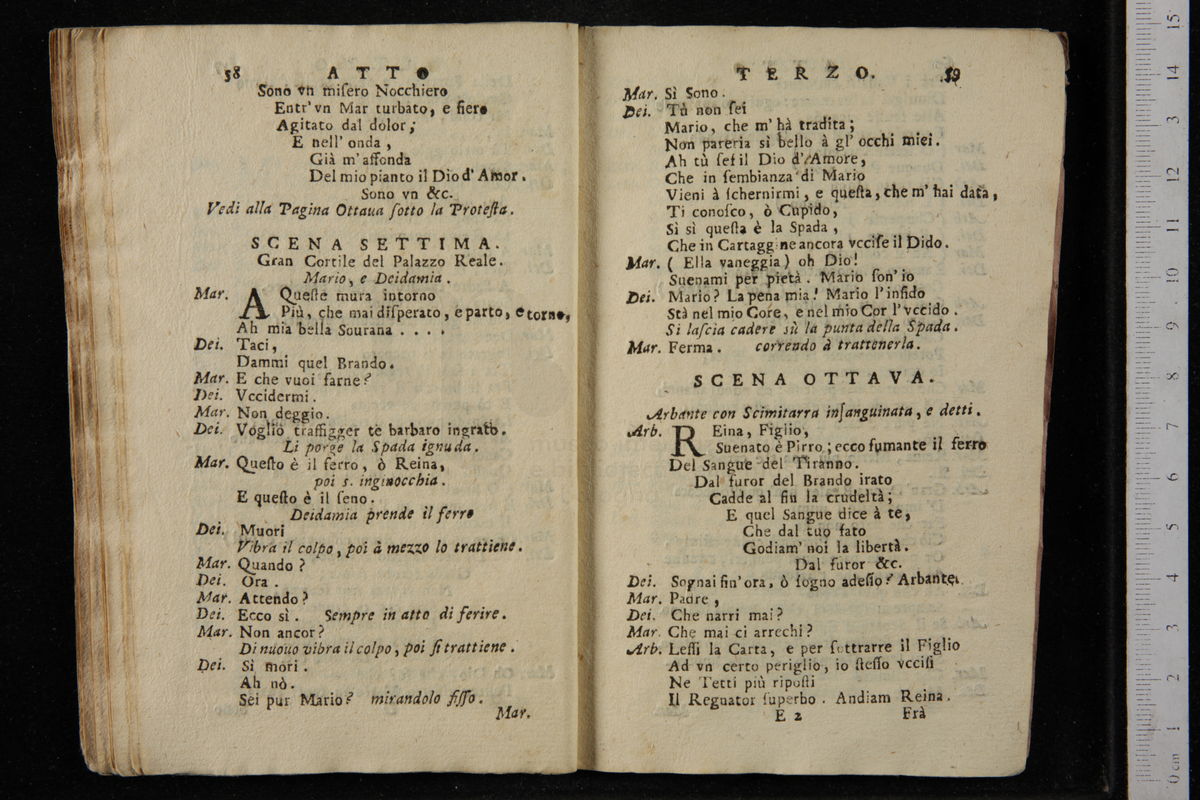 58 ATTO
Sono vn miſero Nocchiero
Entr' vn Mar turbato, e fiero
Agitato dal dolor;
E nell' onda,
Già m' affonda
Del mio pianto il Dio d' Amor.
Sono vn &c.
Vedi alla Pagina Ottaua ſotto la Proteſta.
SCENA SETTIMA.
Gran Cortile del Palazzo Reale.
Mario, e Deidamia.
Mar. A Queſte mura intorno
Più, che mai diſperato, e parto, e torno,
Ah mia bella Sourana . . . .
Dei. Taci,
Dammi quel Brando.
Mar. E che vuoi farne?
Dei. Vccidermi.
Mar. Non deggio.
Dei. Voglio traffigger te barbaro ingrato.
Li porge la Spada ignuda.
Mar. Queſto è il ferro, ò Reina,
poi s. inginocchia.
E queſto è il ſeno.
Deidamia prende il ferro
Dei. Muori
Vibra il colpo, poi à mezzo lo trattiene.
Mar. Quando?
Dei. Ora.
Mar. Attendo?
Dei. Ecco sì. Sempre in atto di ferire.
Mar. Non ancor?
Di nuouo vibra il colpo, poi ſi trattiene.
Dei. Sì mori.
Ah nò.
Sei pur Mario? mirandolo fiſſo.
Mar.
TERZO. 59
Mar. Sì Sono.
Dei. Tù non ſei
Mario, che m' hà tradita;
Non pareria sì bello à gl' occhi miei.
Ah tù ſei il Dio d' Amore,
Che in ſembianza di Mario
Vieni à ſchernirmi, e queſta, che m' hai data,
Ti conoſco, ò Cupido,
Sì sì queſta è la Spada,
Che in Cartagg ne ancora vcciſe il Dido.
Mar. ( Ella vaneggia) oh Dio!
Suenami per pietà. Mario ſon' io
Dei. Mario? La pena mia! Mario l' infido
Stà nel mio Core, e nel mio Cor l' vccido.
Si laſcia cadere sù la punta della Spada.
Mar. Ferma. correndo à trattenerla.
SCENA OTTAVA.
Arbante con Scimitarra inſanguinata, e detti.
Arb. REina, Figlio,
Suenato è Pirro; ecco fumante il ferro
Del Sangue del Tiranno.
Dal furor del Brando irato
Cadde al fin la crudeltà;
E quel Sangue dice à te,
Che dal tuo fato
Godiam' noi la libertà.
Dal furor &c.
Dei. Sognai ſin' ora, ò ſogno adeſſo? Arbante.
Mar. Padre,
Dei. Che narri mai?
Mar. Che mai ci arrechi?
Arb. Leſſi la Carta, e per ſottrarre il Figlio
Ad vn certo periglio, io ſteſſo vcciſi
Ne Tetti più ripoſti
Il Regnator ſuperbo. Andiam Reina.
E 2 Frà
15
14
13
12
11
10
9
8
7
6
5
4
3
2
1
0 cm